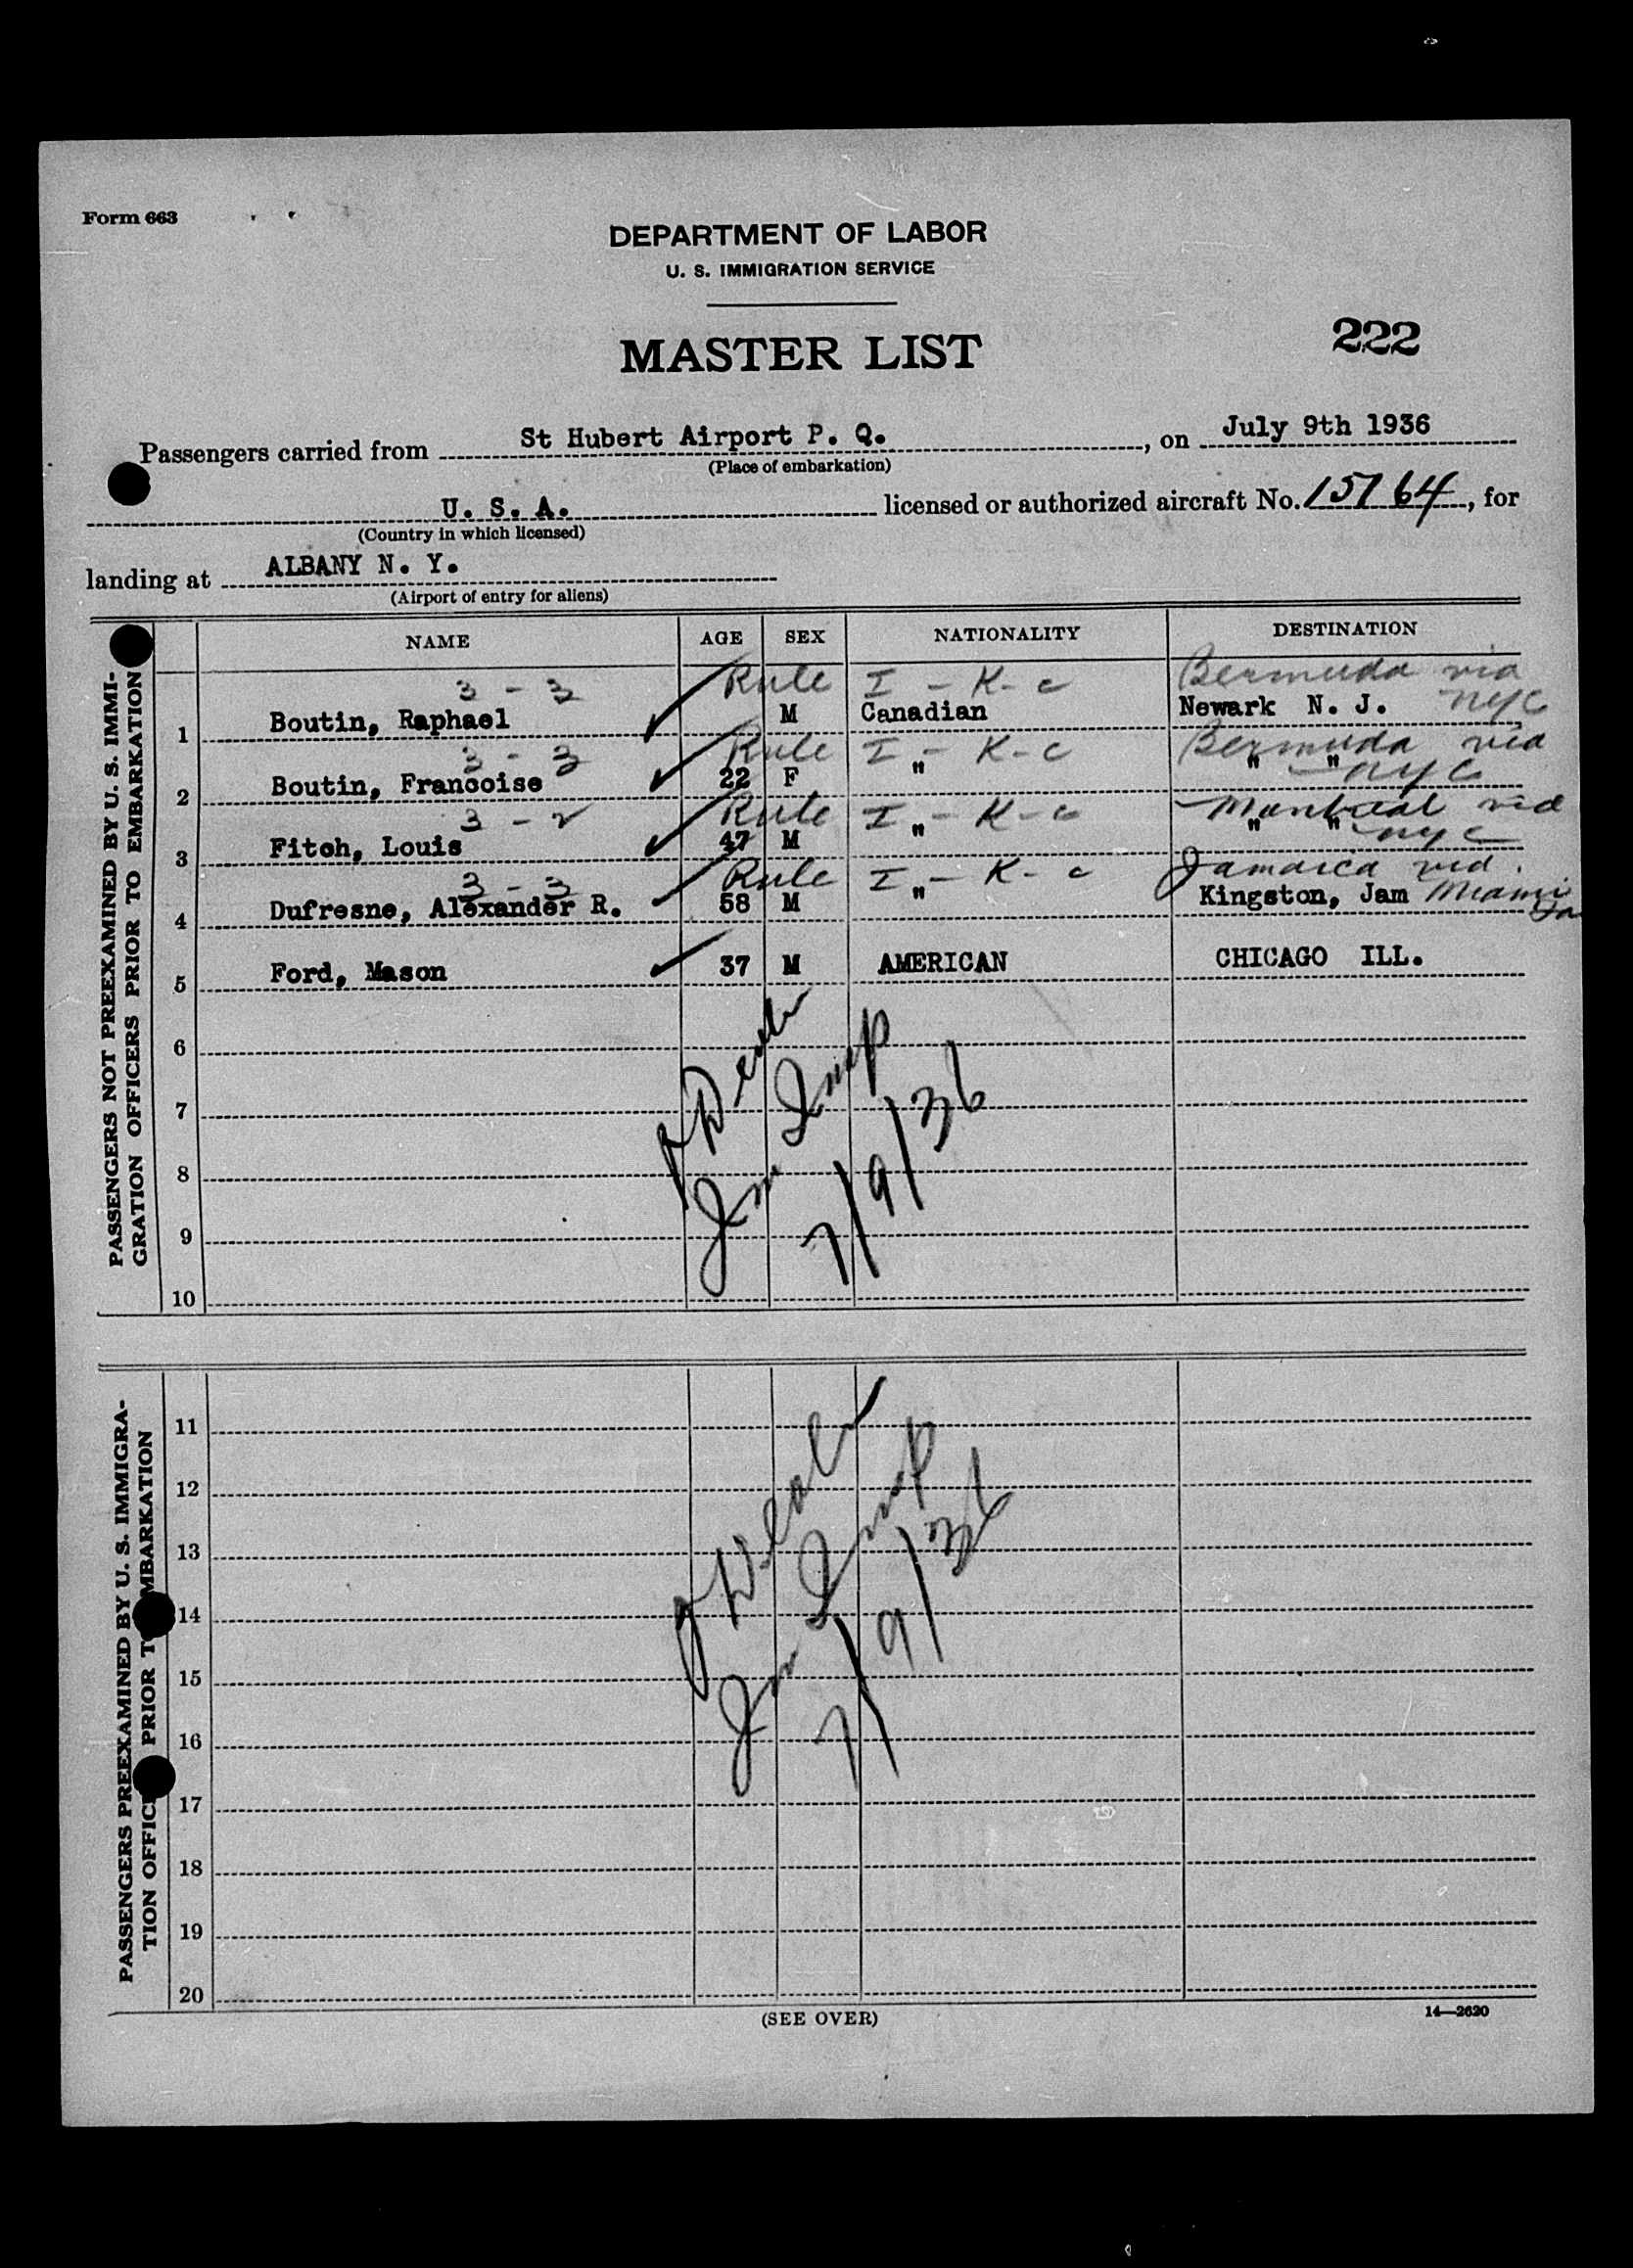 Form 663
DEPARTMENT OF LABOR
U. S. IMMIGRATION SERVICE
MASTER LIST
222
Passengers carried from St Hubert Airport P. Q., on July 9th 1936
(Place of embarkation)
U. S. A. licensed or authorized aircraft No. 15764, for
(Country in which licensed)
landing at ALBANY N. Y.
(Airport of entry for aliens)
NAME AGE SEX NATIONALITY DESTINATION
PASSENGERS NOT PREEXAMINED BY U. S. IMMI-
GRATION OFFICERS PRIOR TO EMBARKATION
3 - 3 Rule I - K - c Bermuda via
1 Boutin, Raphael M Canadian Newark N. J. NYC
3 - 3 Rule I - K - c Bermuda via
2 Boutin, Francoise 22 F " " " NYC
3 - 2 Rule I - K - c Montreal via
3 Fitch, Louis 47 M " " " NYC
3 - 3 Rule I - K - c Jamaica via
4 Dufresne, Alexander R. 58 M " Kingston, Jam Miami
5 Ford, Mason 37 M AMERICAN CHICAGO ILL.
6
7
8
9
10
Imm Insp
7/9/36
PASSENGERS PREEXAMINED BY U. S. IMMIGRA-
TION OFFIC PRIOR T MBARKATION
11
12
13
14
15
16
17
18
19
20
Imm Insp
7/9/36
(SEE OVER)
14—2620